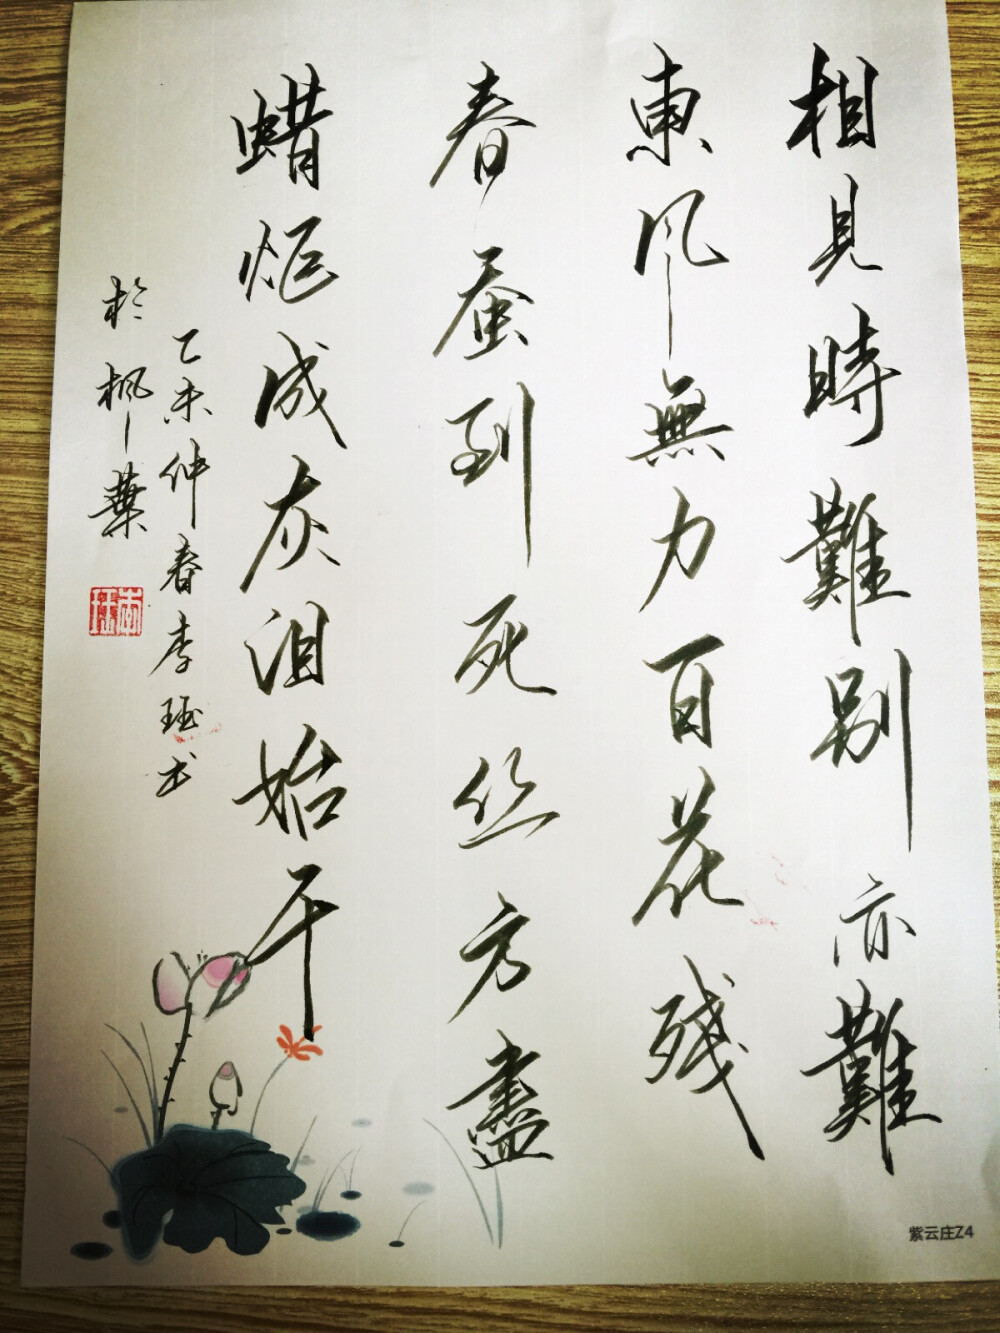 相見時難別亦難
東风無力百花残
春蚕到死丝方盡
蜡炬成灰泪始干
乙未仲春李珏书
於枫葉
李珏
紫云庄Z4